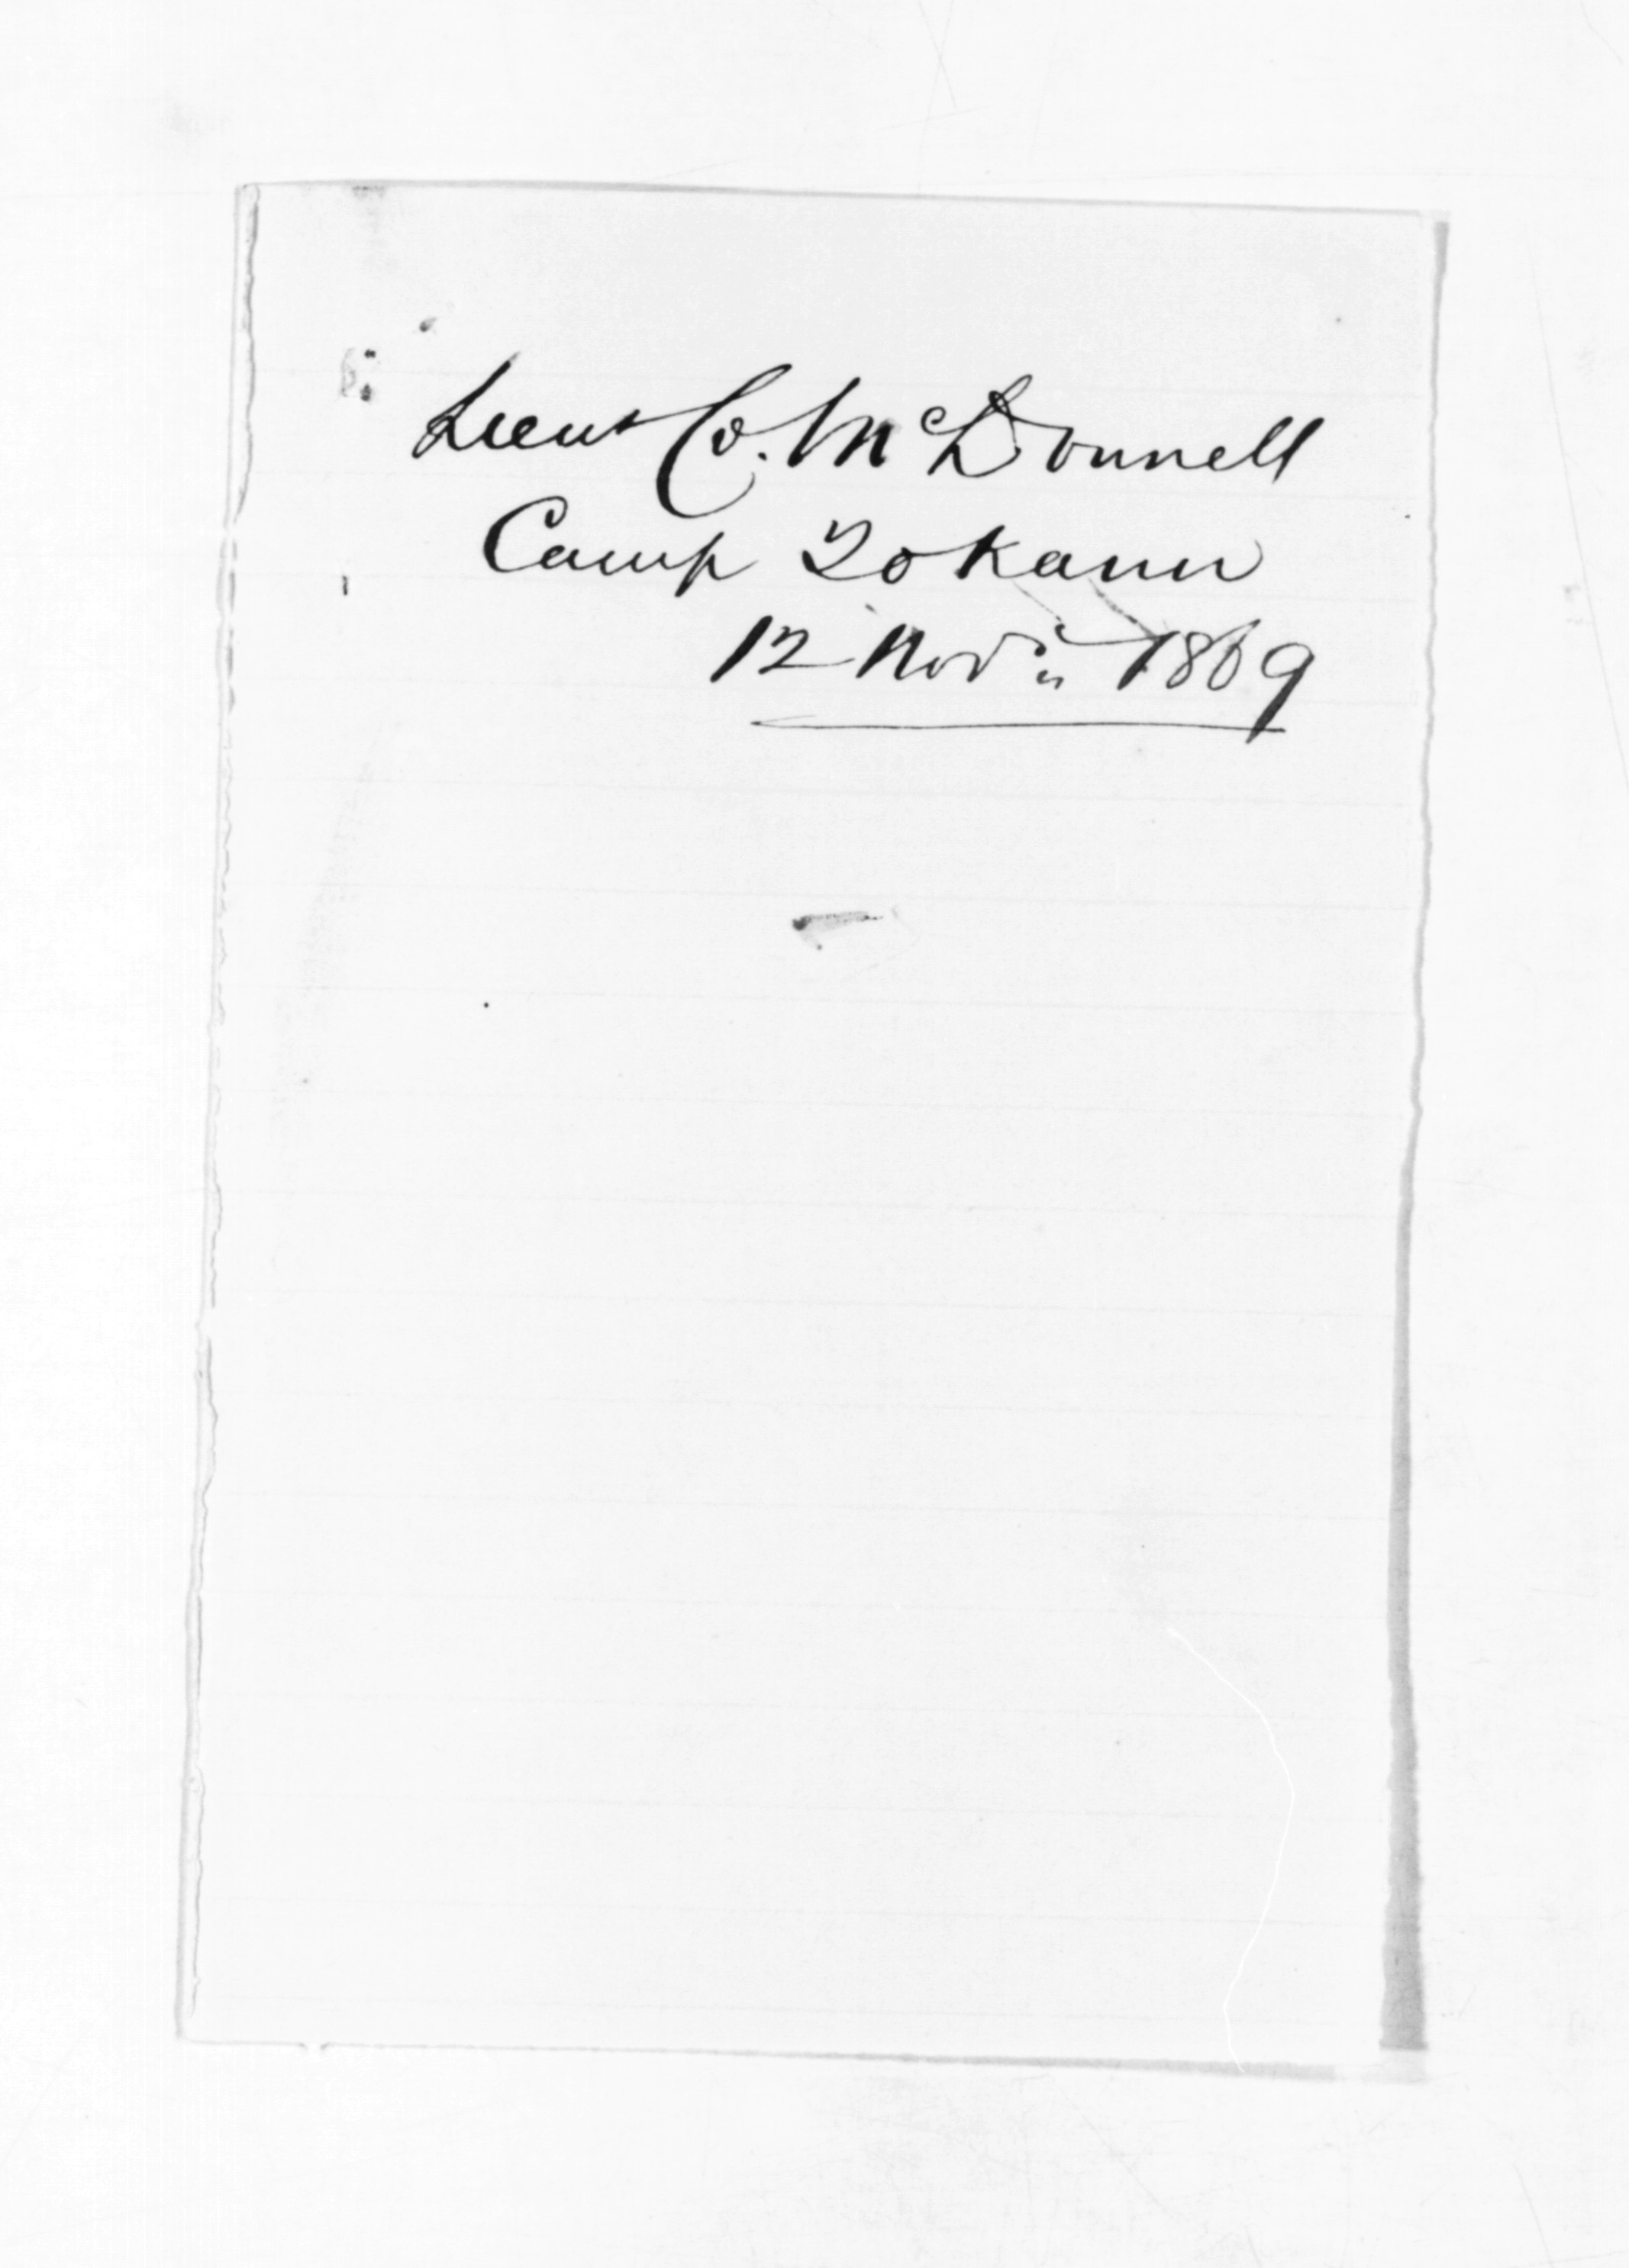 Lieut Co. McDonnell
Camp Tokanu
12 Novr 1869